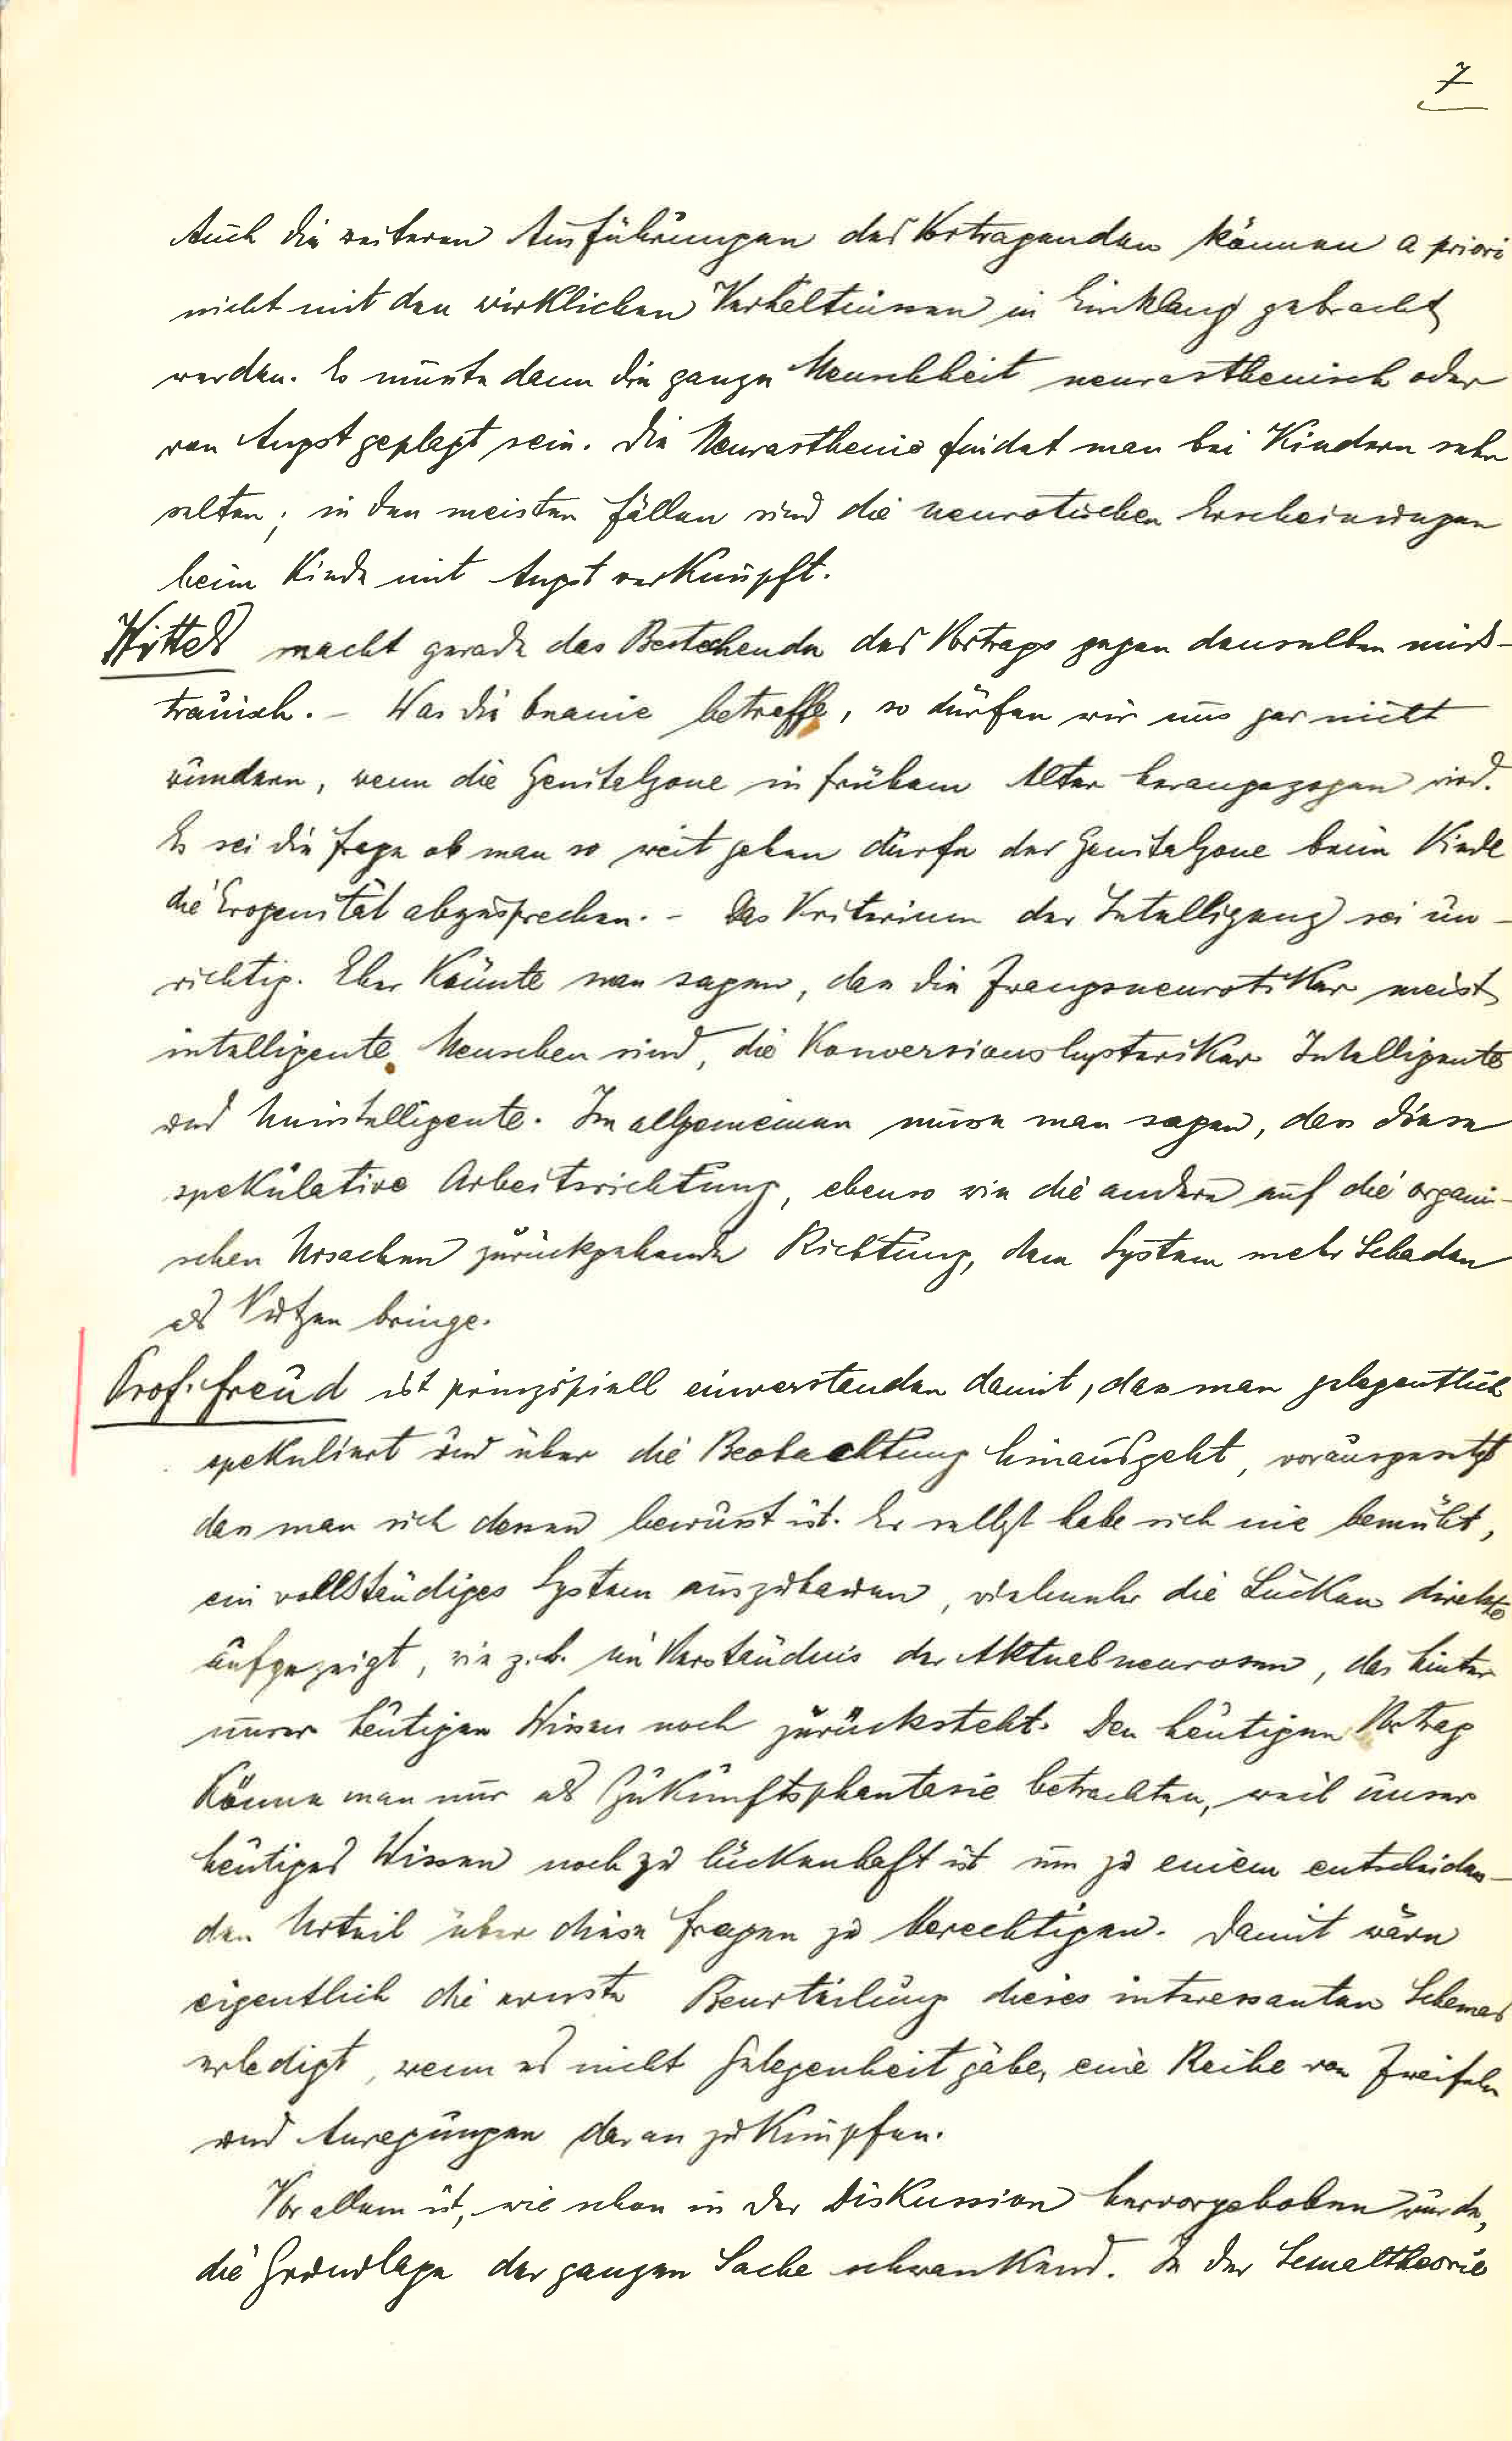 7
Auch die weiteren Ausführungen des Vortragenden können a priori
nicht mit den wirklichen Verhältnissen in Einklang gebracht
werden. Es müsste dann die ganze Menschheit neurasthenisch oder
von Angst geplagt sein. Die Neurasthenie findet man bei Kindern sehr
selten; in den meisten Fällen sind die neurotischen Erscheinungen
beim Kinde mit Angst verknüpft.
Wittels macht gerade das Bestechende des Vortrags gegen denselben miss-
trauisch. – Was die Onanie betreffe, so dürfen wir uns gar nicht
wundern, wenn die Genitalzone in frühem Alter herangezogen wird.
Es sei die Frage ob man so weit gehen dürfe der Genitalzone beim Kinde
die Erogenität abzusprechen. – Das Kriterium der Intelligenz sei un-
richtig. Eher könnte man sagen, dass die Zwangsneurotiker meist
intelligente Menschen sind, die Konversionshysteriker Intelligente
und Unintelligente. Im allgemeinen müsse man sagen, dass diese
spekulative Arbeitsrichtung, ebenso wie die andere auf die organi-
schen Ursachen zurückgehende Richtung, dem System mehr Schaden
als Nutzen bringe.
Prof. Freud ist prinzipiell einverstanden damit, dass man gelegentlich
spekuliert und über die Beobachtung hinausgeht, vorausgesetzt
dass man sich dessen bewusst ist. Er selbst habe sich nie bemüht,
ein vollständiges System auszubauen, vielmehr die Lücken direkte
aufgezeigt, wie z.b. im Verständnis der Aktualneurosen, das hinter
unser heutigen Wissen noch zurücksteht. Den heutigen Vortrag
könne man nur als Zukunftsphantasie betrachten, weil unser
heutiges Wissen noch zu lückenhaft ist um zu einem entscheiden-
den Urteil über diese Fragen zu berechtigen. Damit wäre
eigentlich die ernste Beurteilung dieses interessanten Schemas
erledigt, wenn es nicht Gelegenheit gäbe, eine Reihe von Zweifeln
und Anregungen daran zu knüpfen.
Vor allem ist, wie schon in der Diskussion hervorgehoben wurde,
die Grundlage der ganzen Sache schwankend. In der Sexualtheorie